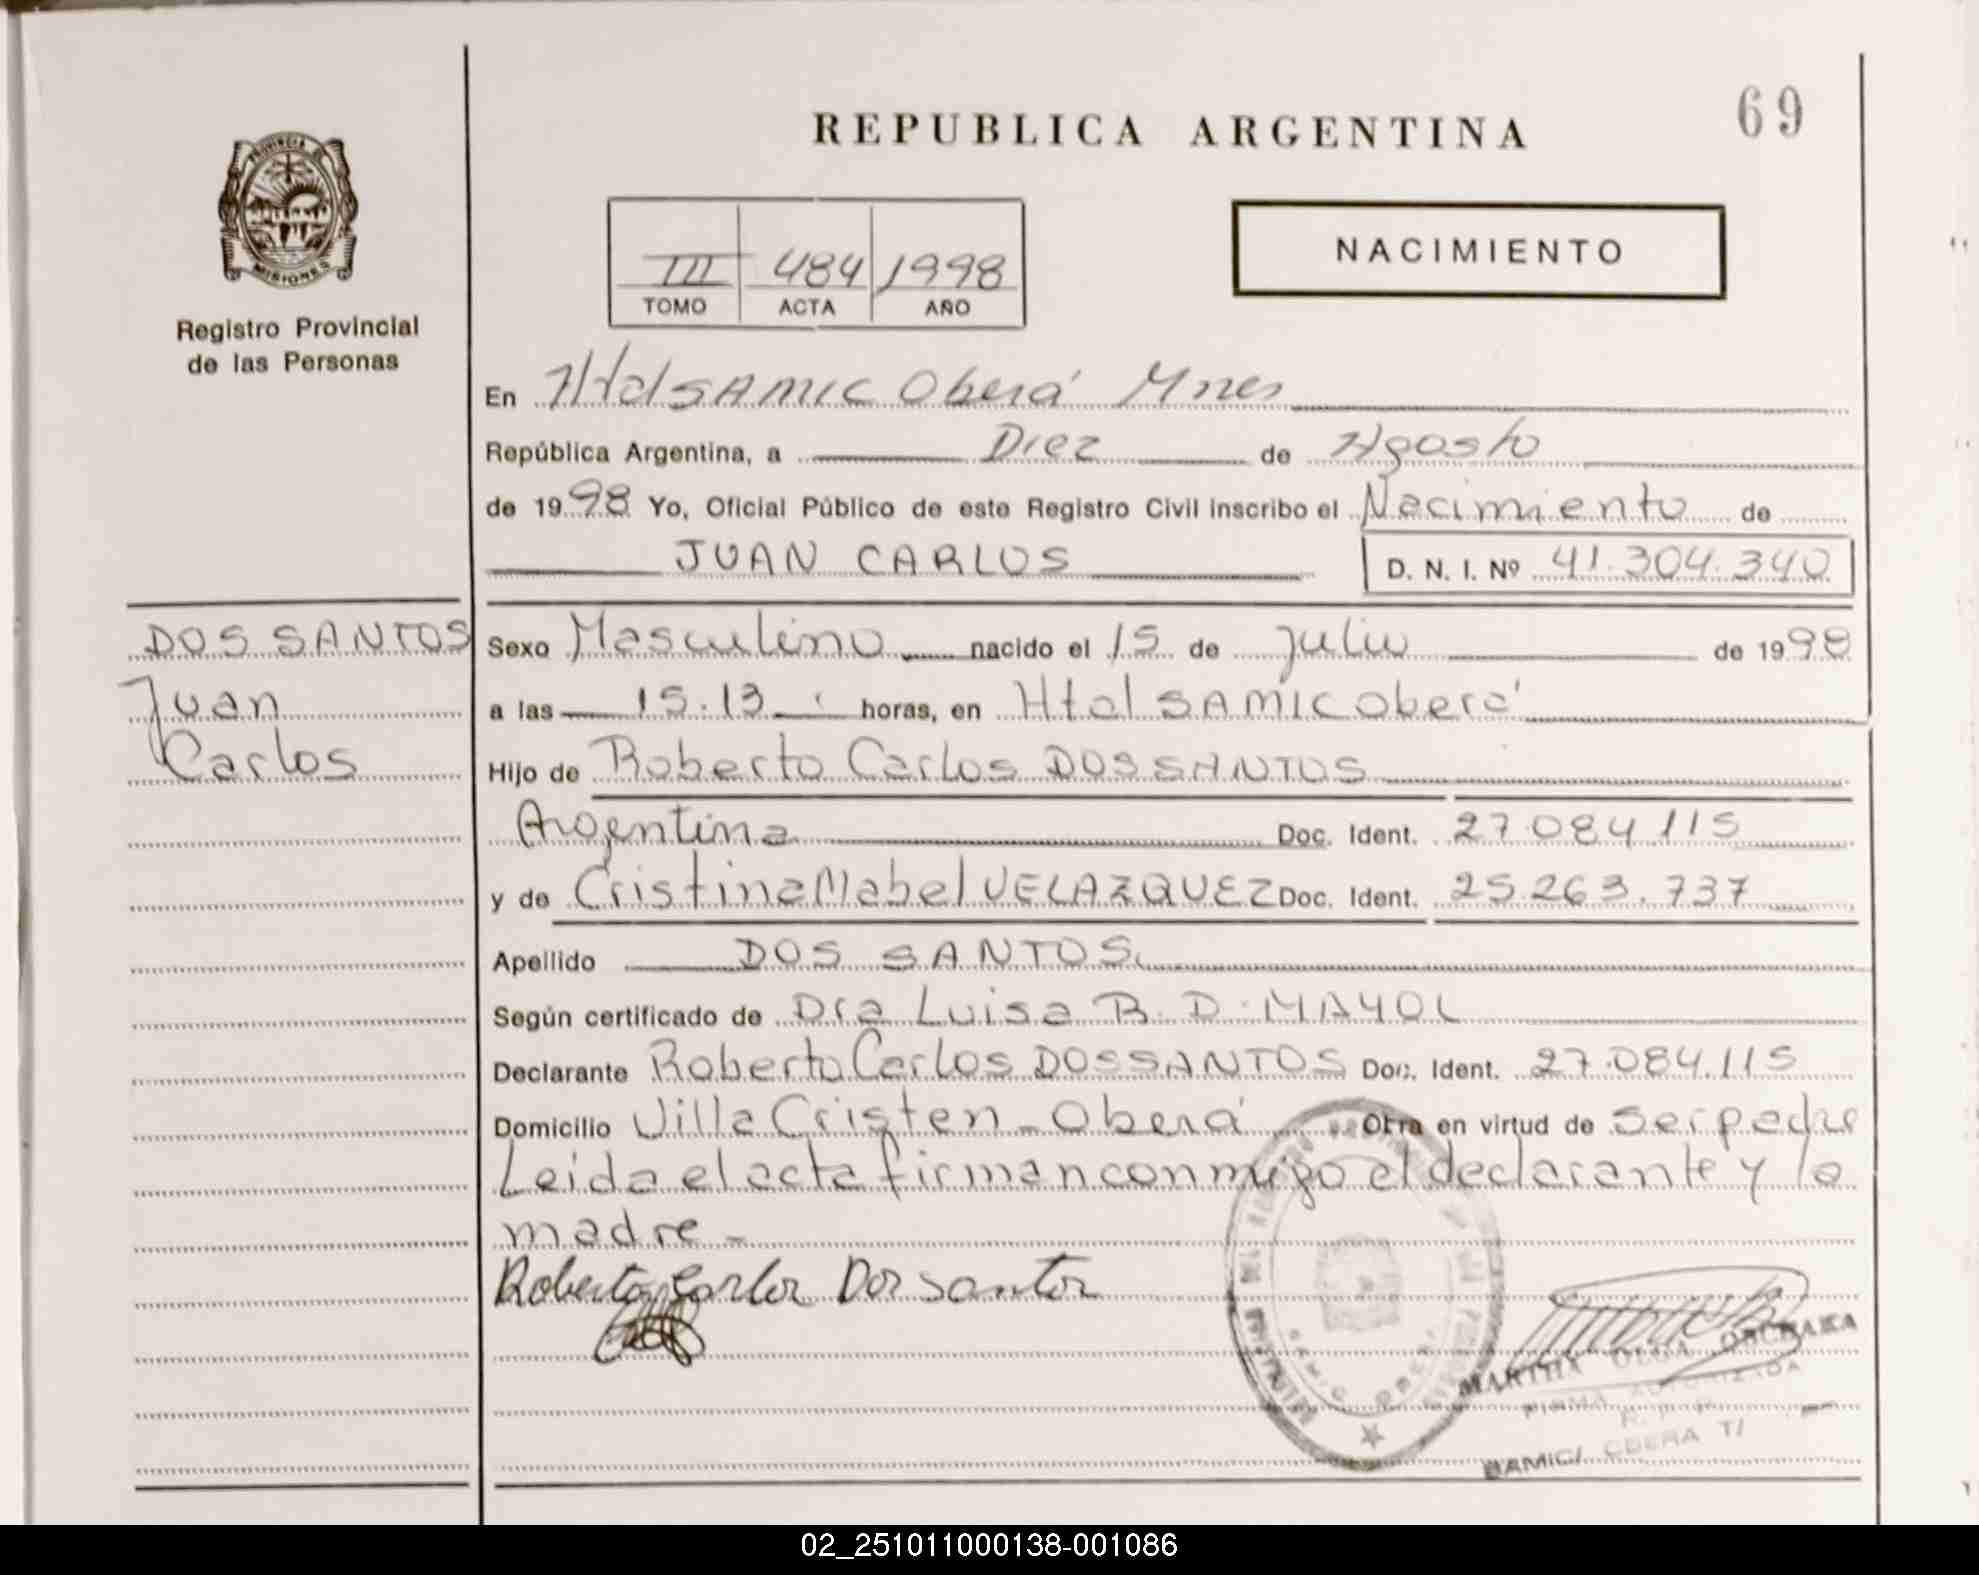 69
REPUBLICA ARGENTINA
PROVINCIA DE
MISIONES
Registro Provincial
de las Personas
NACIMIENTO
III 484 1998
TOMO ACTA AÑO
En Htal SAMIC Oberá Mnes
República Argentina, a Diez de Agosto
de 1998 Yo, Oficial Público de este Registro Civil inscribo el Nacimiento de
JUAN CARLOS D. N. I. Nº 41.304.340
DOS SANTOS
Juan
Carlos
Sexo Masculino nacido el 15 de Julio de 1998
a las 15.13 horas, en Htal SAMIC Oberá
Hijo de Roberto Carlos DOS SANTOS
Argentina Doc. Ident. 27.084.115
y de Cristina Mabel VELAZQUEZ Doc. Ident. 25.263.737
Apellido DOS SANTOS
Según certificado de Dra Luisa B. D. MAYOL
Declarante Roberto Carlos DOS SANTOS Doc. Ident. 27.084.115
Domicilio Villa Cristen - Oberá Obra en virtud de ser padre
Leida el acta firman conmigo el declarante y la
madre -
Roberto Carlos Dos santos
MARTHA OLGA
FIRMA AUTORIZADA
R. P. P.
SAMIC/ OBERA
02_251011000138-001086